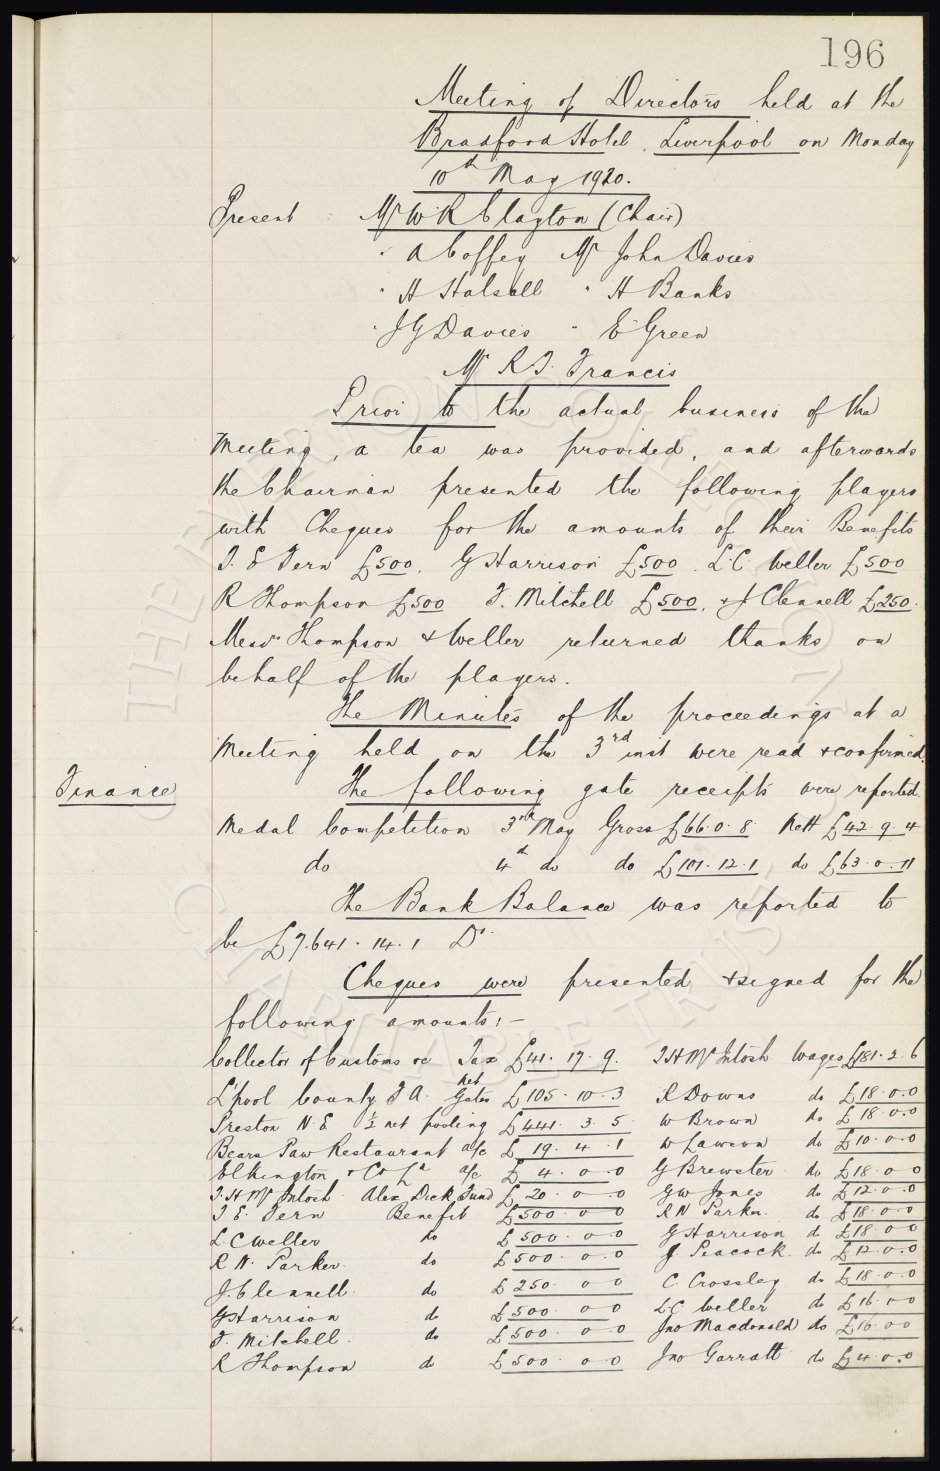 196
Meeting of Directors held at the
Bradford Hotel, Liverpool on Monday
10th May 1920.
Present : Mr W R Clayton (Chair)
" A Coffey Mr John Davies
" H Halsall " H Banks
" J G Davies " E Green
Mr R T. Francis
Prior to the actual business of the
Meeting, a tea was provided, and afterwards
the Chairman presented the following players
with Cheques for the amounts of their Benefits
T. E Fern £500. G Harrison £500. L.C. Weller £500
R Thompson £500 F. Mitchell £500, & J Clennell £250.
Messrs Thompson & Weller returned thanks on
behalf of the players.
The Minutes of the proceedings at a
Meeting held on the 3rd inst were read & confirmed.
Finance
The following gate receipts were reported.
Medal Competition 3rd May Gross £66.0.8 Nett £42.9.4
do 4th do do £101.12.1 do £63.0.11
The Bank Balance was reported to
be £7.641.14.1 Dr.
Cheques were presented & signed for the
following amounts:-
Collector of Customs re Tax £41.17.9. T H McIntosh Wages £181.2.6
L'pool County F A. net Gates £105.10.3 R Downs do £18.0.0
Preston N.E ½ net pooling £441.3.5 W Brown do £18.0.0
Bears Paw Restaurant a/c £19.4.1 W Lawson do £10.0.0
Elkington & Co Ld a/c £4.0.0 G Brewster do £18.0.0
T.H McIntosh Alex Dick Fund £20.0.0 G W Jones do £12.0.0
T E. Fern Benefit £500.0.0 R N Parker do £18.0.0
L C Weller do £500.0.0 G Harrison do £18.0.0
R N. Parker do £500.0.0 J Peacock do £12.0.0
J. Clennell do £250.0.0 C. Crossley do £18.0.0
G Harrison do £500.0.0 L.C Weller do £16.0.0
F. Mitchell do £500.0.0 Jno Macdonald do £16.0.0
R Thompson do £500.0.0 Jno Garratt do £4.0.0